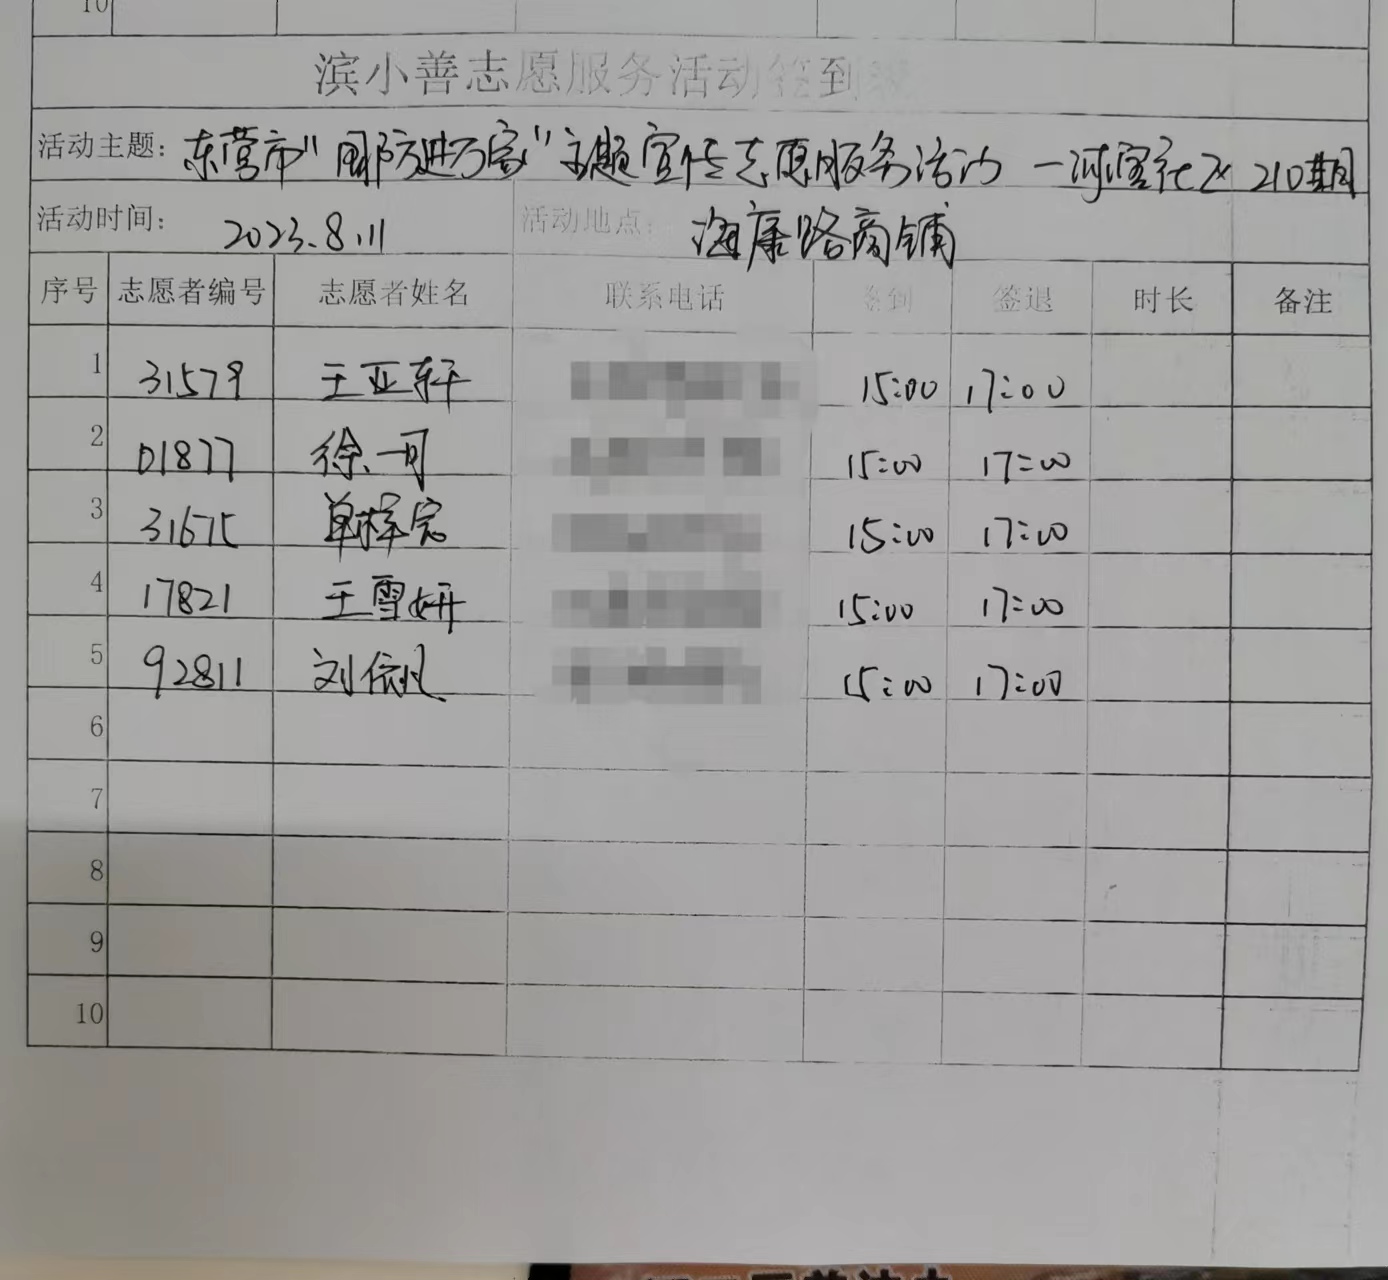 10
滨小善志愿服务活动签到表
活动主题：东营市"国防进万家"主题宣传志愿服务活动 一河富社区 210期
活动时间： 2023.8.11 活动地点： 海康路商铺
序号 志愿者编号 志愿者姓名 联系电话 签到 签退 时长 备注
1 31579 王亚轩 15:00 17:00
2 01877 徐一可 15:00 17:00
3 31675 单梓宸 15:00 17:00
4 17821 王雪妍 15:00 17:00
5 92811 刘依凡 15:00 17:00
6
7
8
9
10